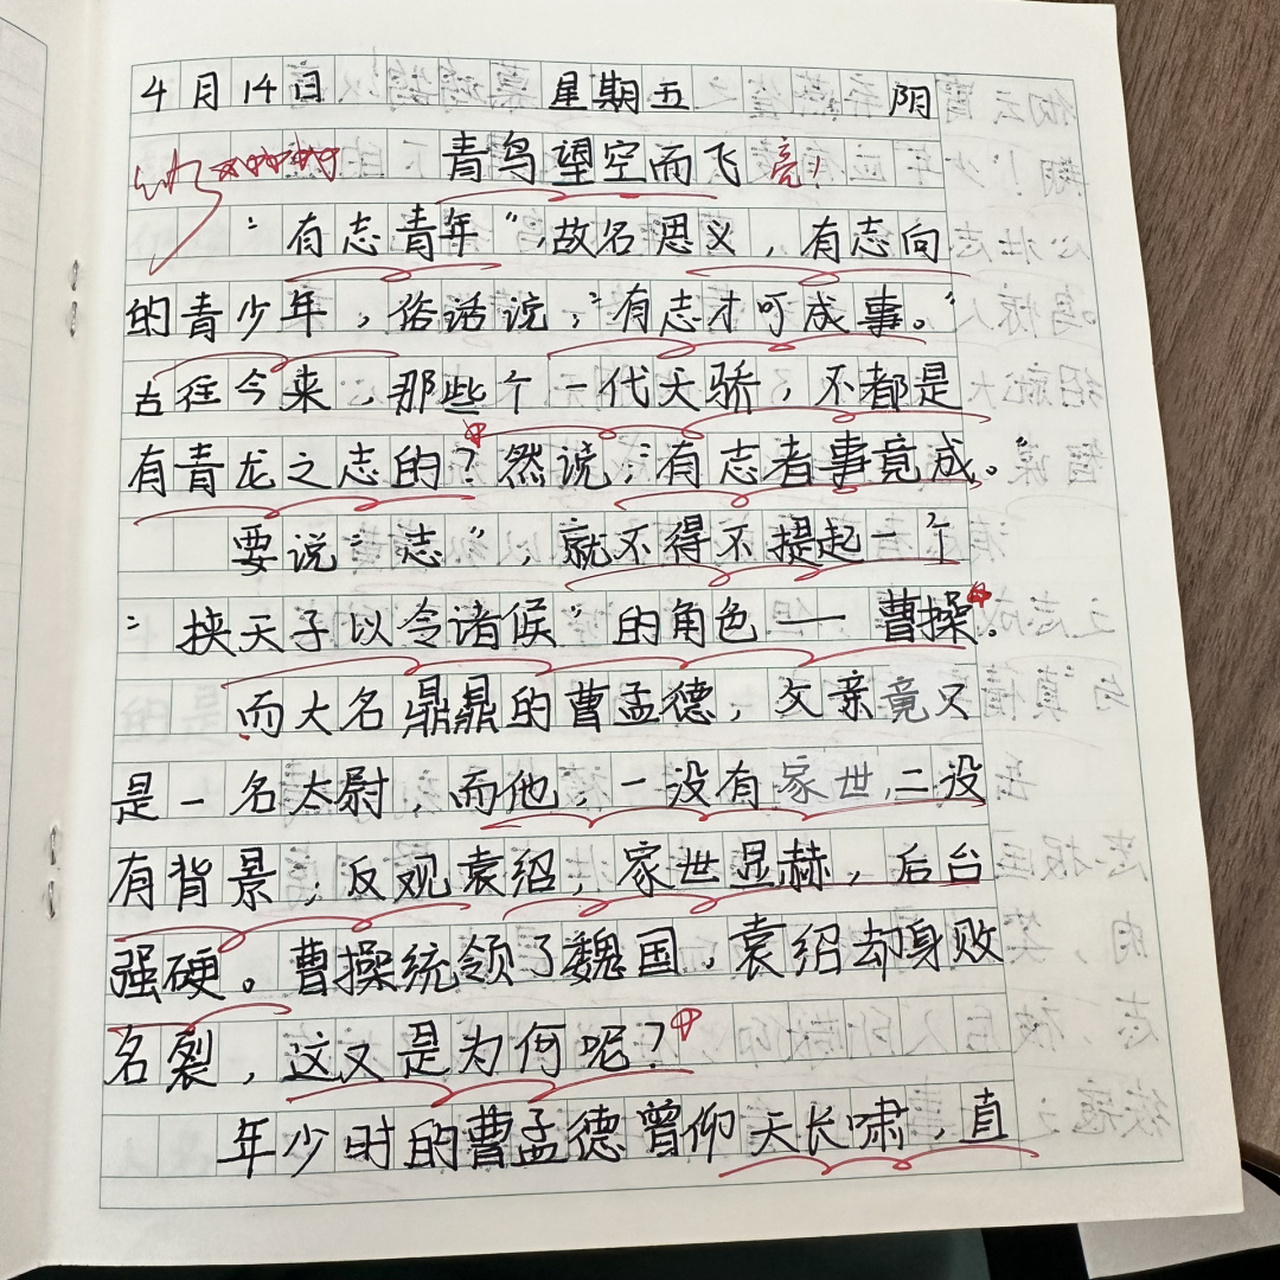 4月14日 星期五 阴
青鸟望空而飞 亮!
“有志青年”,故名思义,有志向
的青少年,俗话说:“有志才可成事。”
古往今来,那些个一代天骄,不都是
有青龙之志的?然说:“有志者事竟成。”
要说“志”,就不得不提起一个
“挟天子以令诸候”的角色——曹操。
而大名鼎鼎的曹孟德,父亲竟只
是一名太尉,而他,一没有家世,二没
有背景,反观袁绍,家世显赫,后台
强硬。曹操统领了魏国,袁绍却身败
名裂,这又是为何呢?
年少时的曹孟德曾仰天长啸,直